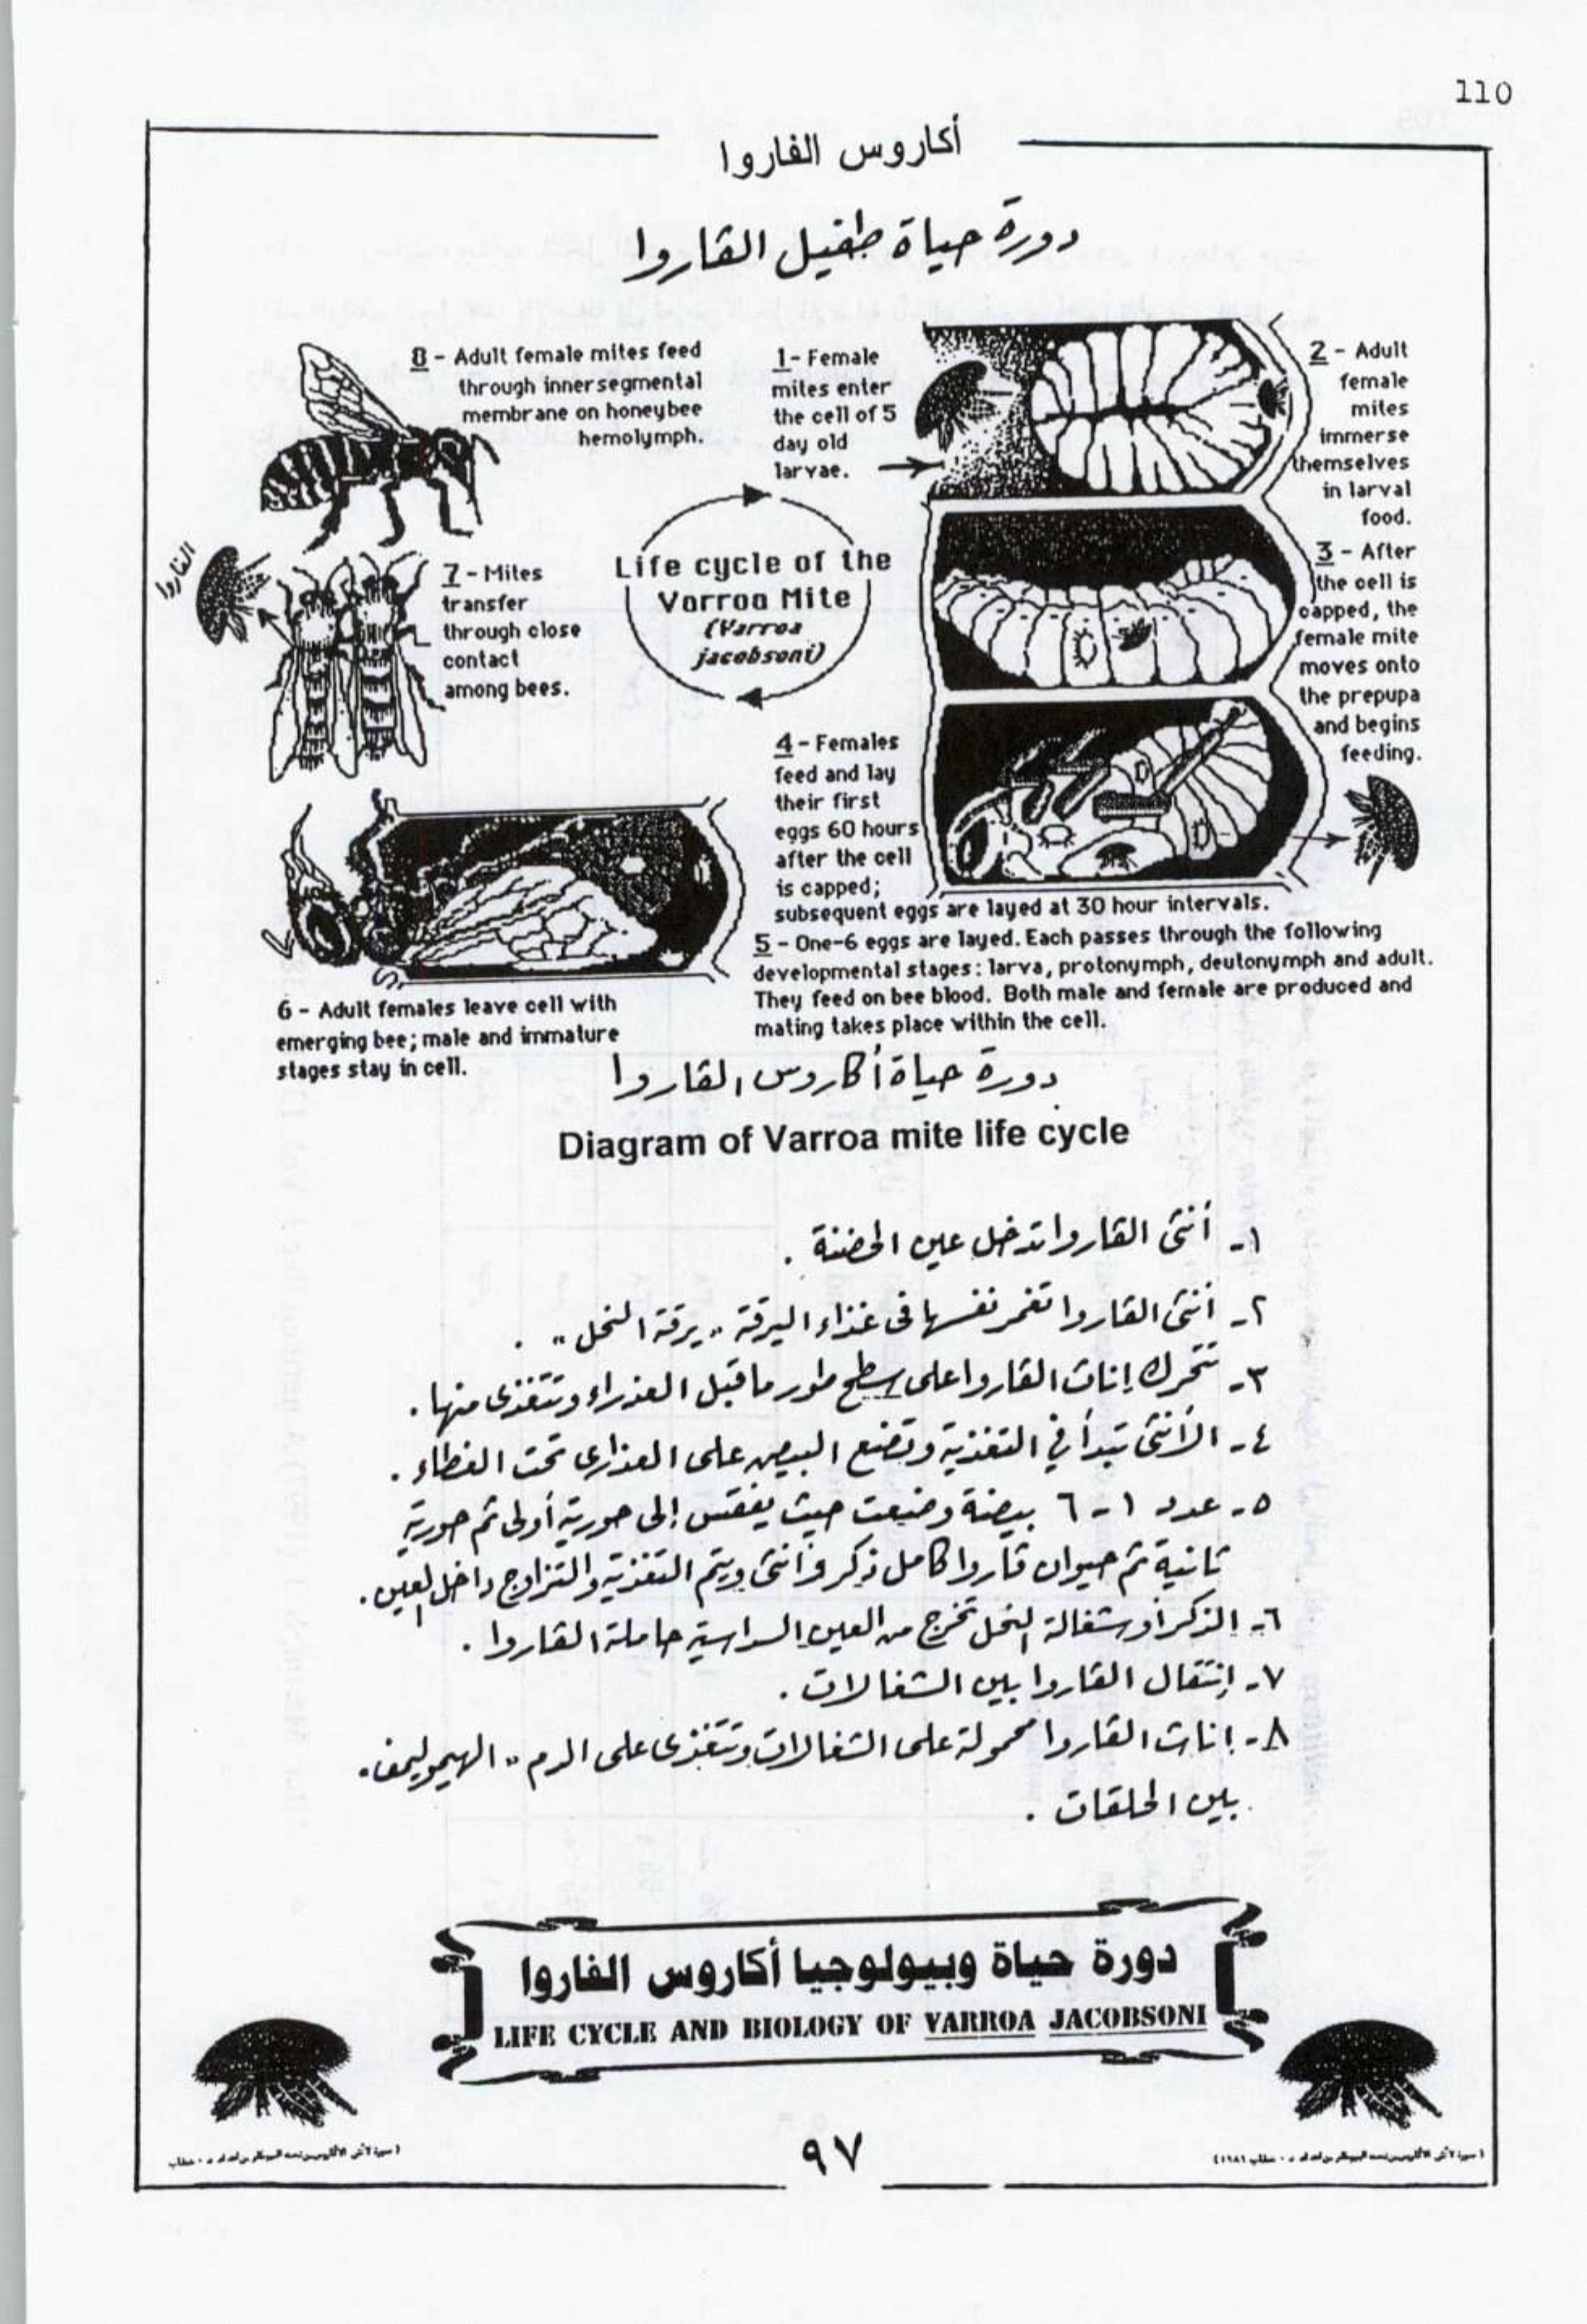 110
أكاروس الفاروا
دورة حياة طفيل الفاروا
8 - Adult female mites feed
through innersegmental
membrane on honeybee
hemolymph.
1 - Female
mites enter
the cell of 5
day old
larvae.
2 - Adult
female
mites
immerse
themselves
in larval
food.
3 - After
the cell is
capped, the
female mite
moves onto
the prepupa
and begins
feeding.
الفاروا
7 - Mites
transfer
through close
contact
among bees.
Life cycle of the
Varroa Mite
(Varroa
jacobsoni)
4 - Females
feed and lay
their first
eggs 60 hours
after the cell
is capped;
subsequent eggs are layed at 30 hour intervals.
5 - One-6 eggs are layed. Each passes through the following
developmental stages: larva, protonymph, deutonymph and adult.
They feed on bee blood. Both male and female are produced and
mating takes place within the cell.
6 - Adult females leave cell with
emerging bee; male and immature
stages stay in cell.
دورة حياة أكاروس الفاروا
Diagram of Varroa mite life cycle
١- أنثى الفاروا تدخل عين الحضنة .
٢- أنثى الفاروا تغمر نفسها فى غذاء اليرقة " يرقة النحل " .
٣- تتحرك إناث الفاروا على سطح طور ماقبل العذراء وتتغذى منها .
٤- الأنثى تبدأ في التغذية وتضع البيض على العذارى تحت الغطاء .
٥- عدد ١ - ٦ بيضة وضعت حيث يفقس إلى حورية أولى ثم حورية
ثانية ثم حيوان فاروا كامل ذكر وأنثى ويتم التغذية والتزاوج داخل العين .
٦- الذكر أو شغالة النحل تخرج من العين السداسية حاملة الفاروا .
٧- إنتقال الفاروا بين الشغالات .
٨- إناث الفاروا محمولة على الشغالات وتتغذى على الدم " الهيموليمف "
بين الحلقات .
دورة حياة وبيولوجيا أكاروس الفاروا
LIFE CYCLE AND BIOLOGY OF VARROA JACOBSONI
٩٧